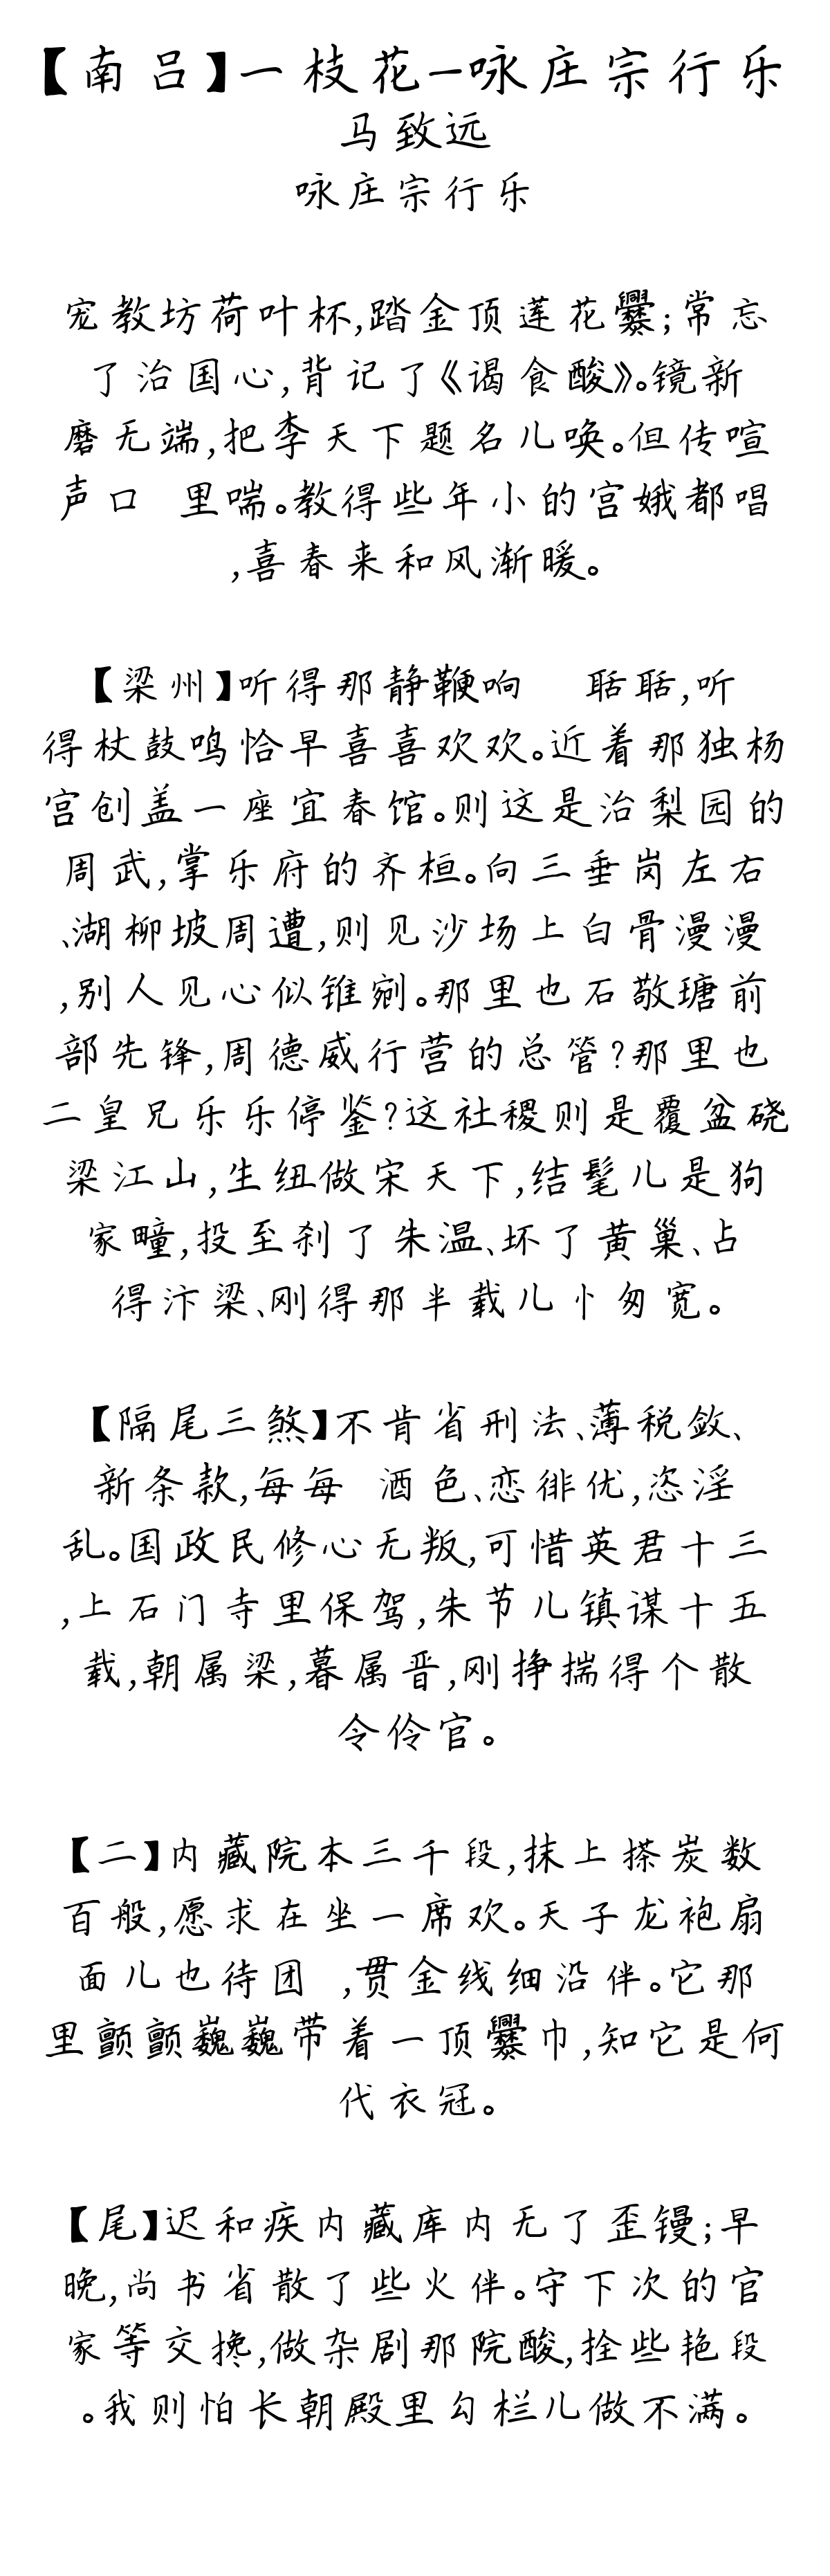 【南吕】一枝花-咏庄宗行乐
马致远
咏庄宗行乐
宠教坊荷叶杯,踏金顶莲花爨;常忘
了治国心,背记了《谒食酸》。镜新
磨无端,把李天下题名儿唤。但传喧
声口 里喘。教得些年小的宫娥都唱
,喜春来和风渐暖。
【梁州】听得那静鞭响 聒聒,听
得杖鼓鸣恰早喜喜欢欢。近着那独杨
宫创盖一座宜春馆。则这是治梨园的
周武,掌乐府的齐桓。向三垂岗左右
、湖柳坡周遭,则见沙场上白骨漫漫
,别人见心似锥剜。那里也石敬瑭前
部先锋,周德威行营的总管?那里也
二皇兄乐乐停鉴?这社稷则是覆盆硗
梁江山,生纽做宋天下,结髦儿是狗
家疃,投至刹了朱温、坏了黄巢、占
得汴梁、刚得那半载儿忄匆宽。
【隔尾三煞】不肯省刑法、薄税敛、
新条款,每每 酒色、恋徘优,恣淫
乱。国政民修心无叛,可惜英君十三
,上石门寺里保驾,朱节儿镇谋十五
载,朝属梁,暮属晋,刚挣揣得个散
令伶官。
【二】内藏院本三千段,抹上搽炭数
百般,愿求在坐一席欢。天子龙袍扇
面儿也待团 ,贯金线细沿伴。它那
里颤颤巍巍带着一顶爨巾,知它是何
代衣冠。
【尾】迟和疾内藏库内无了歪镘;早
晚,尚书省散了些火伴。守下次的官
家等交搀,做杂剧那院酸,拴些艳段
。我则怕长朝殿里勾栏儿做不满。